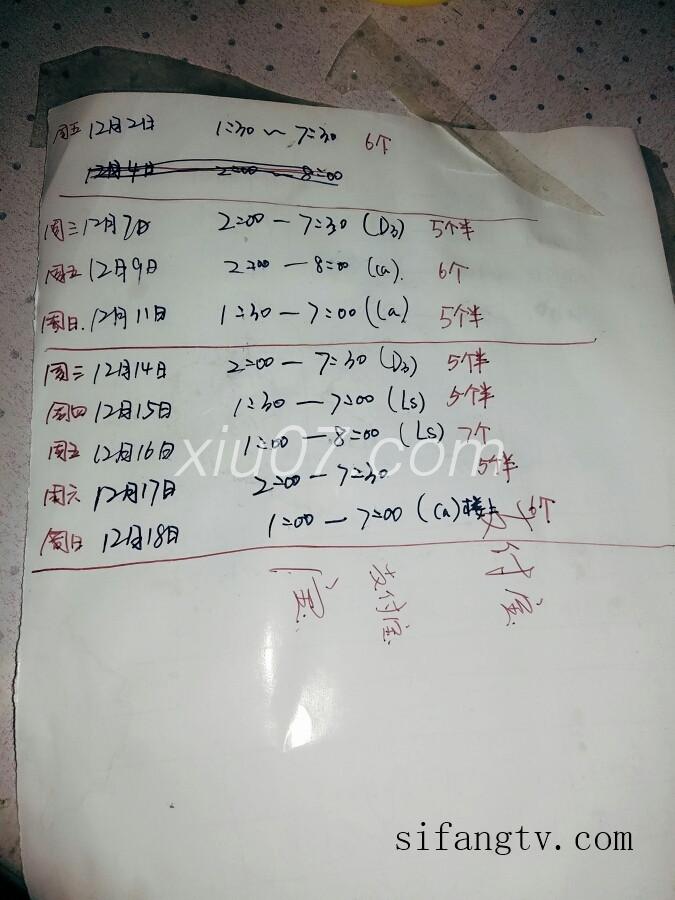 周五 12月2日 1:30 ~ 7:30 6个
12月4日 2:00 — 8:00
周三 12月7日 2:00 — 7:30 (D3) 5个半
周五 12月9日 2:00 — 8:00 (Ca) 6个
周日 12月11日 1:30 — 7:00 (Ca) 5个半
周三 12月14日 2:00 — 7:30 (D3) 5个半
周四 12月15日 1:30 — 7:00 (Ls) 5个半
周五 12月16日 1:00 — 8:00 (Ls) 7个
xiu07.com
周六 12月17日 2:00 — 7:30 5个半
周日 12月18日 1:00 — 7:00 (Ca) 楼上 6个
支付宝
付宝
sifangtv.com